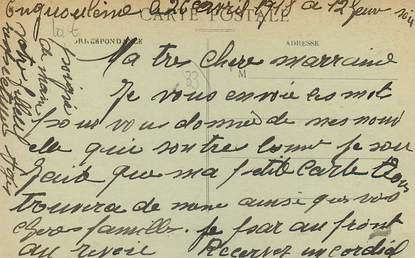 Engouleme le 26 avril 1918 a 12 heur
CARTE POSTALE
CORRESPONDANCE
ADRESSE
Ma tres chere marraine
Je vous envoie ces mot
pour vous donnée de mes nouv
elle qui son tres bonne je
que ma petite Carte
trouvera de meme ainsi que vos
cheres familles. je par au front
au revoir Recevez un cordial
la main
votre filleul